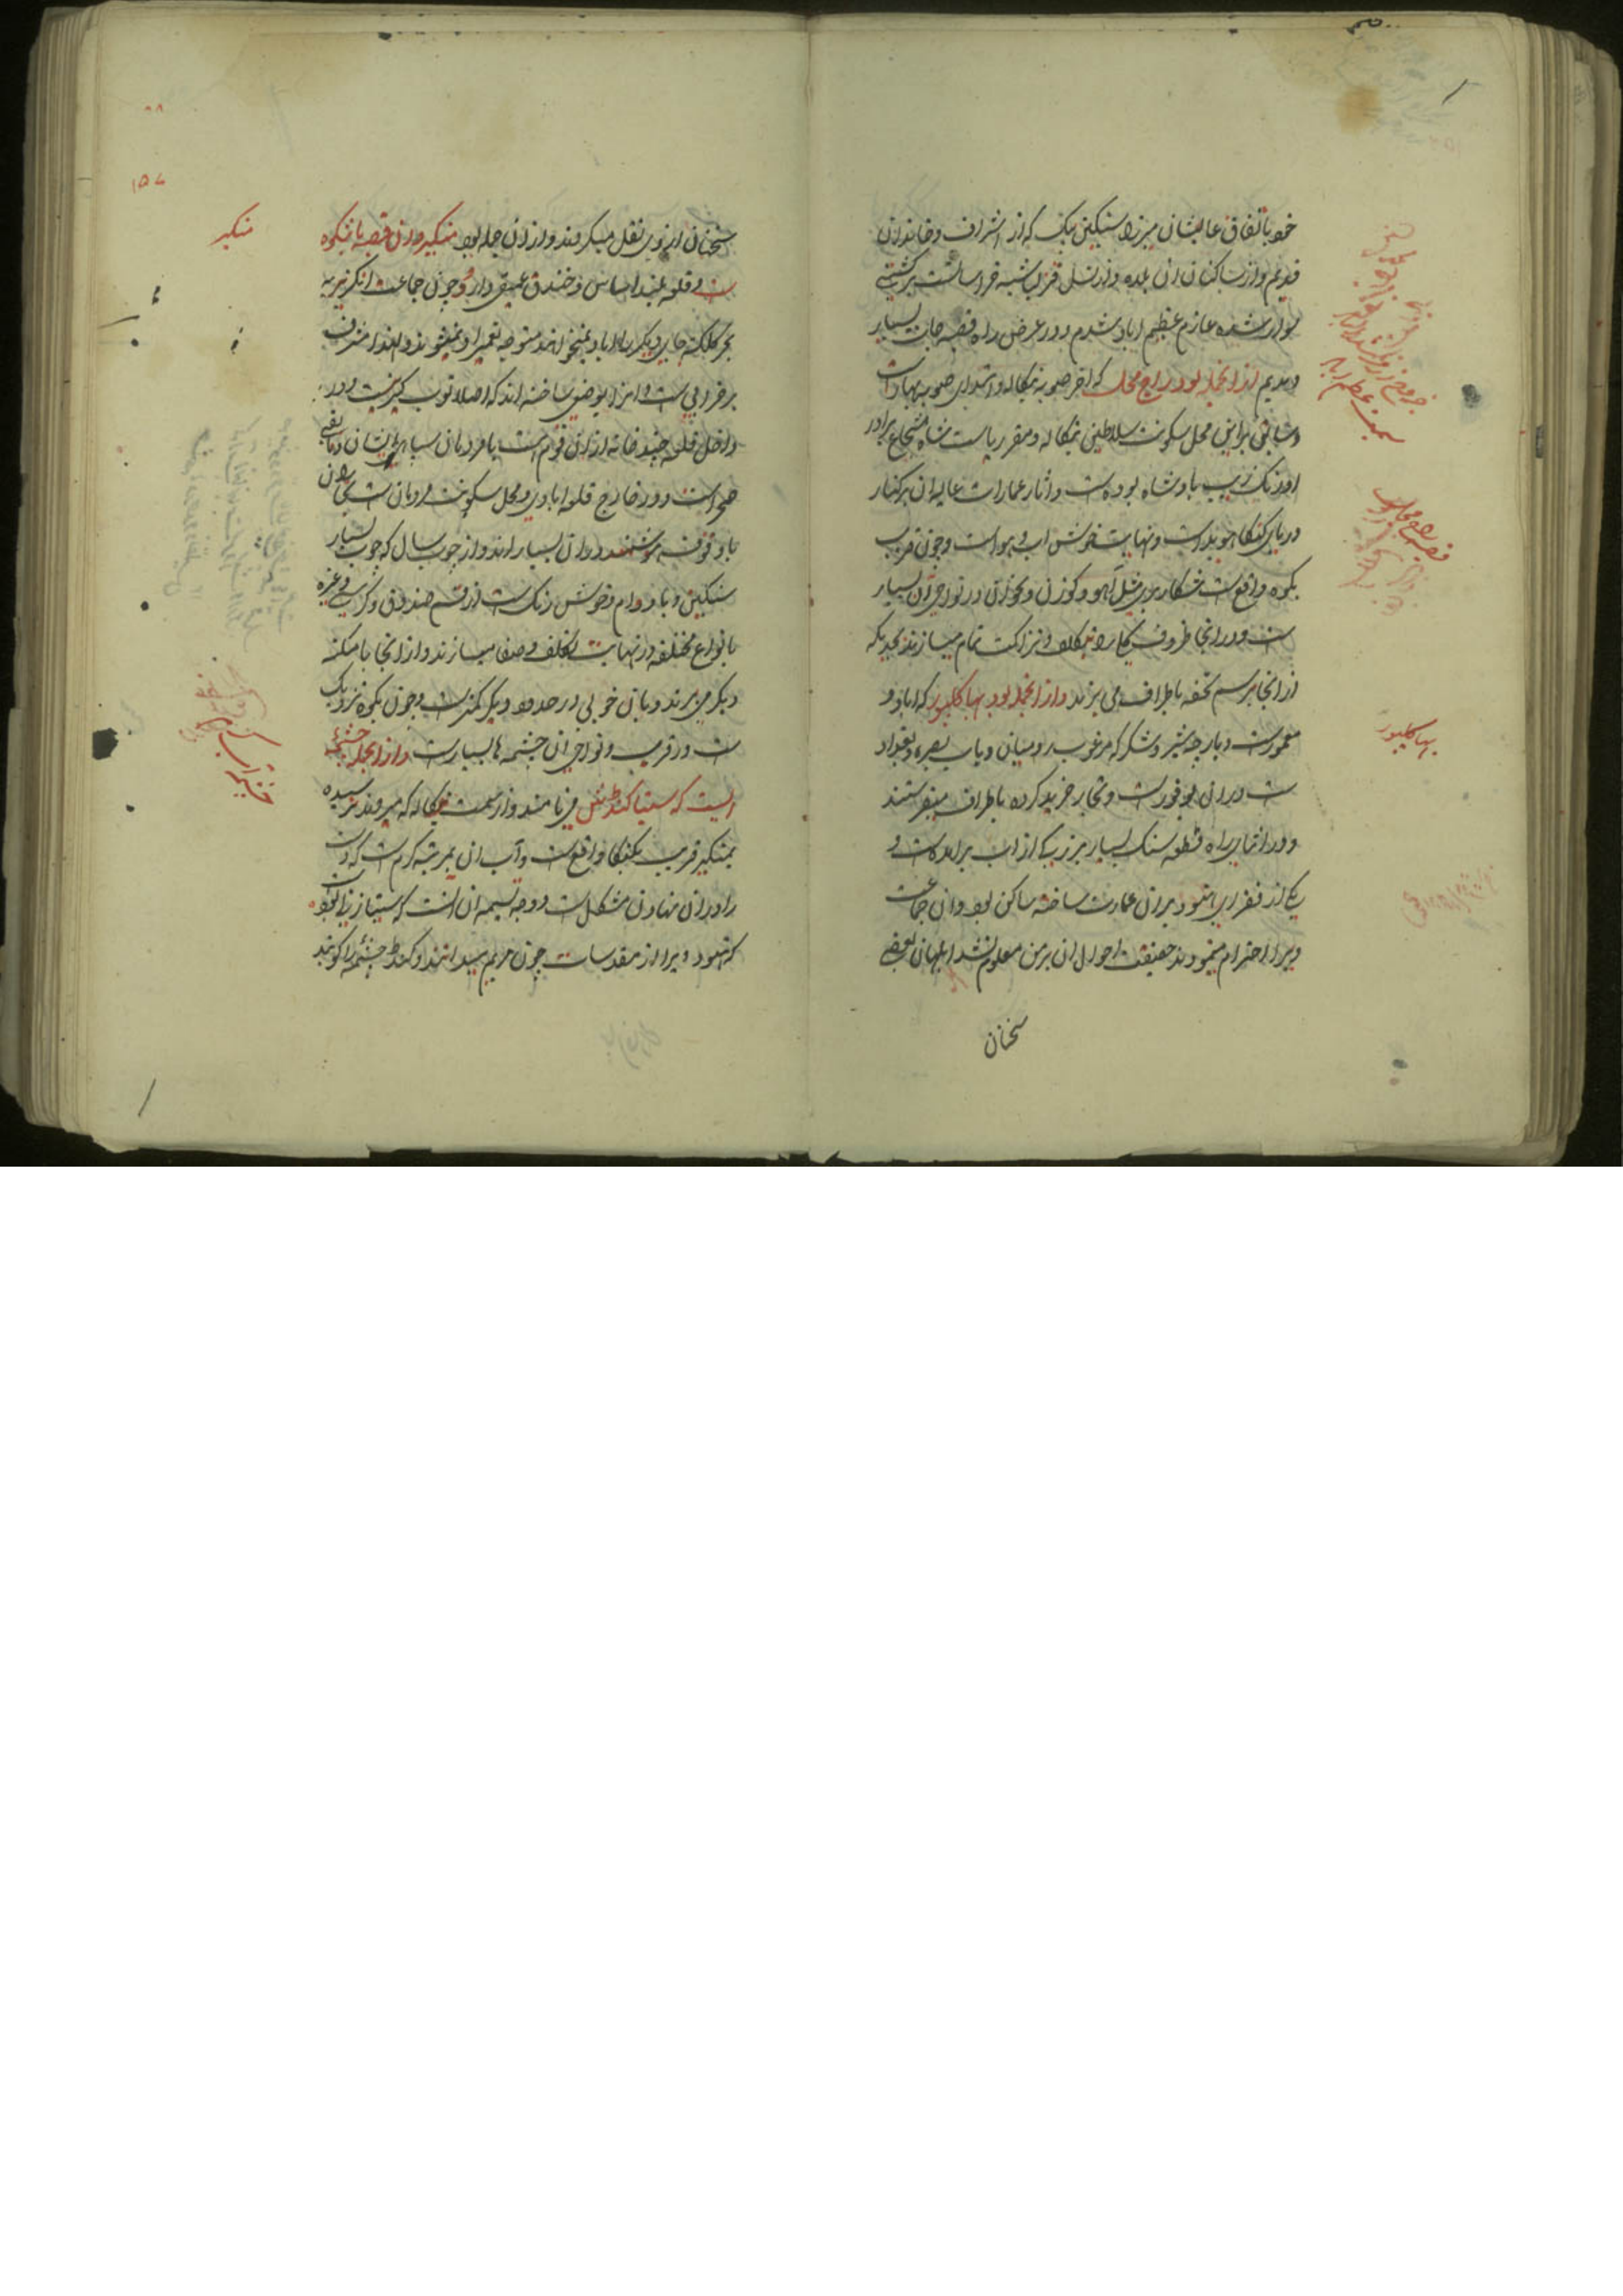 خود باتفاق عالیشان میرزا سنکین بیک که از اشراف و خاندان
قدیم و از ساکنان ان بلده و از نسل قزلباشیه خراسانست بر کشتی
سوار شده عازم عظیم اباد شدم و در عرض راه قصبه جات بسیار
دیدیم از انجمله بود راج محل که اخر صوبه بنکاله و ابتدای صوبه بهار است
و سابق بر این محل سکونت سلاطین بنکاله و مقر ریاست شاه شجاع برادر
اورنک زیب پادشاه بوده است و اثار عمارات عالیه ان بر کنار
دریای کنکا هویداست و نهایت خوش اب و هواست و چون قریب
بکوه واقع است شکار بری مثل آهو و کوزن و نحو ان در نواحی ان بسیار
ست و در انجا ظروف کلی را بتکلف و نزاکت تمام میسازند بحدیکه
از انجا برسم تحفه باطراف می برند و از انجمله بود بهاکلپور که اباد و
معمورست و پارچه شیر و شکر که مرغوب رومیان و باب بصره و بغداد
ست در ان بوفورست و تجار خرید کرده باطراف میفرستند
و در اثنای راه قطعه سنک بسیار بزرکی از اب برامده است و
یکی از فقرای هنود بر ان عمارت ساخته ساکن بود و ان جماعت
ویرا احترام مینمودند حقیقت احوال ان بر من معلوم نشد ابلهان بعضی
سخنان
بهاکلپور
سخنان از وی نقل میکردند و از ان جمله بود منکیر و ان قصبه با شکوه
ست و قلعه بلند اساس و خندق عمیقی دارد و چون جماعت انکریزیه
بجز کلکته جای دیکر را اباد نمیخواهند متوجه تعمیر او نمیشوند و لهذا مشرف
بر خرابی ست و انرا بوضعی ساخته اند که اصلا توپ کیر نیست و در
داخل قلعه چند خانه از ان قوم است یا مردمان سپاهی ایشان و مابقی
صحراست و در خارج قلعه ابادی و محل سکونت مردمان است نجاران
با وقوف هوشمند در ان بسیار اند و از چوب سال که چوب بسیار
سنکین و با دوام و خوش رنک ست از قسم صندوق و کرسی و غیره
بانواع مختلفه در نهایت تکلف و صفا میسازند و از انجا بامکنه
دیکر می برند و بان خوبی در حدود دیکر کمترست و چون بکوه نزدیک
ست در قرب و نواحی ان چشمه ها بسیارست و از انجمله چشمه
ایست که سیتا کندطش می نامند و از سمت بنکاله که میروند نرسیده
بمنکیر قریب بکنکا واقع ست و آب ان بمرتبه کرم است که دست
را در ان نهادن مشکل ست و وجه تسمیه ان انست که سیتا زنی بوده
که هنود ویرا از مقدسات چون مریم میدانند و کند چشمه را کویند
منکیر